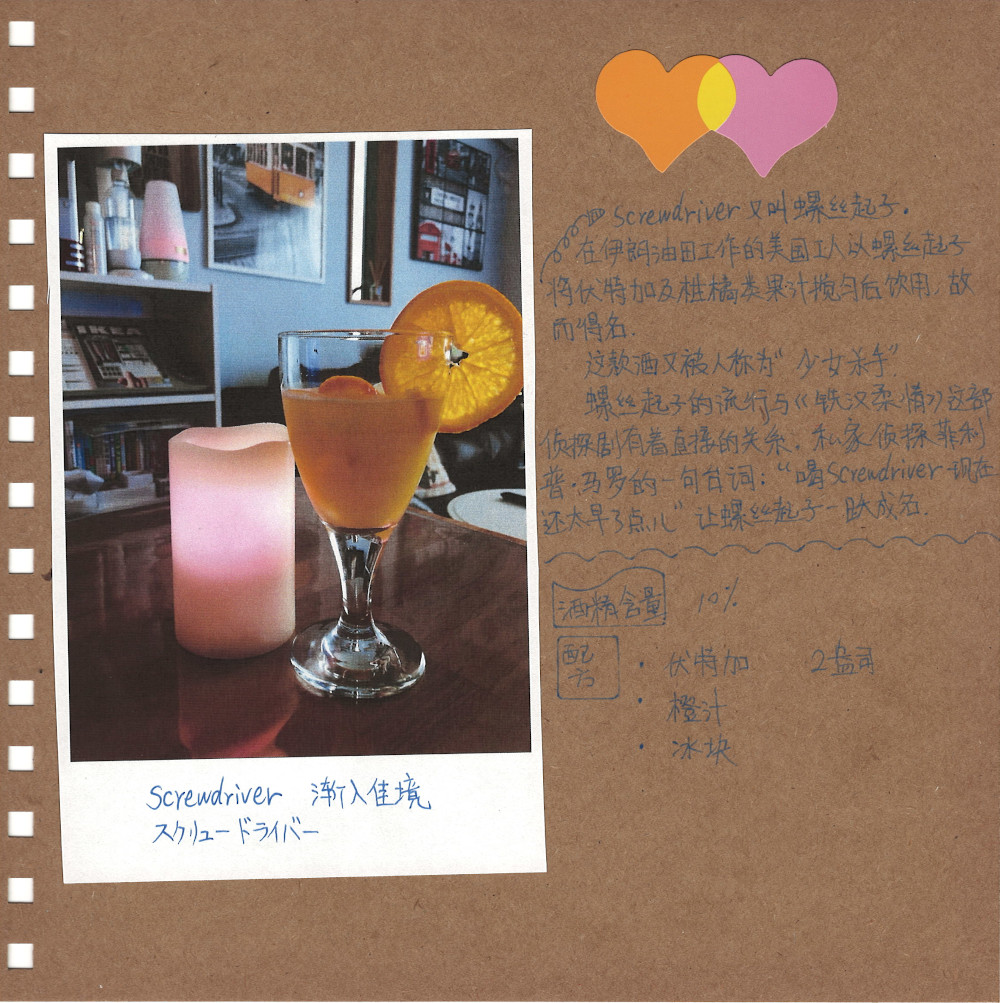 IKEA
Screwdriver 渐入佳境
スクリュードライバー
Screwdriver 又叫螺丝起子.
在伊朗油田工作的美国工人以螺丝起子
将伏特加及柑橘类果汁搅匀后饮用,故
而得名.
这款酒又被人称为“少女杀手”
螺丝起子的流行与《铁汉柔情》这部
侦探剧有着直接的关系,私家侦探菲利
普·马罗的一句台词:“喝Screwdriver现在
还太早了点儿”让螺丝起子一跃成名.
酒精含量 10%
配方
· 伏特加 2盎司
· 橙汁
· 冰块